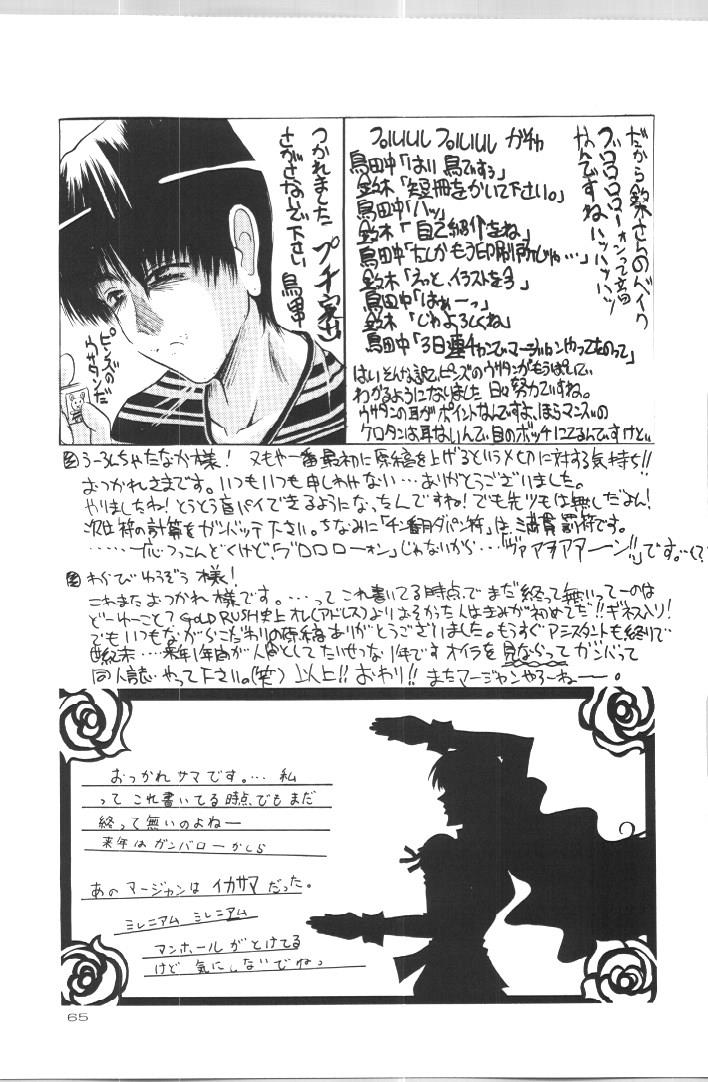 だから鈴木さんのバイク
ブロロロローォンって言音
なんですねハッハッハッ
フルルルル フルルルル ガチャ
鳥田中「はい 鳥ですう」
鈴木「短冊をかいて下さい。」
鳥田中「ハッ」
鈴木「自己紹介をね」
鳥田中「たしかもう印刷所じゃ…」
鈴木「えっと、イラストを今」
鳥田中「はあぁーっ」
鈴木「じゃよろしくね」
鳥田中「3日連チャンでマージャンやってたのって」
はい そんな訳で、ピンズのウサタンがもうぱいして
わかるようになりました 日々努力ですね。
ウサタンの耳がポイントなんですよ、ほらマンズの
ケロタンは耳ないんで 目のポッチににてるんですけど…
つかれました プチ家出
さがさないで下さい 鳥田中
ピンズの
ウサタンだ
うーろんちゃたなか様! 又もや一番最初に原稿を上げるというメ切に対する気持ち!!
おつかれさまです。いつもいつも申しわけない…ありがとうございました。
やりましたね! とうとう盲パイできるようになったんですね! でも先ヅモは無しだよん!
次は符の計算をガンバッテ下さい。ちなみに「チン番月ダパン符」は満貫罰符です。
……ブルーつっこんどくけど、「ブロロローォン」じゃないから…「ヴァァヲアアーン!!」です。…く?
わらびゆうぞう様!
これまたおつかれ様です。…って これ書いてる時点でまだ終って無いってーのは
どーゆーこと? GOLD RUSH史上オレ(アドレス)よりおそかった人はきみが初めてだ!! ギネス入り!
でもいつもながらこだわりの原稿ありがとうございました。もうすぐアシスタントも終りで
世紀末…来年1年間が人間としてたいせつな1年です オイラを見ならってガンバって
同人誌やって下さい。(笑) 以上!! おわり!! またマージャンやろーねー。
おつかれサマです。… 私
って これ書いてる時点でもまだ
終って無いのよねー
来年はガンバローかしら
あのマージャンは イカサマだった。
ミレニアム ミレニアム
マンホールがとけてる
けど 気にしないでねっ
65